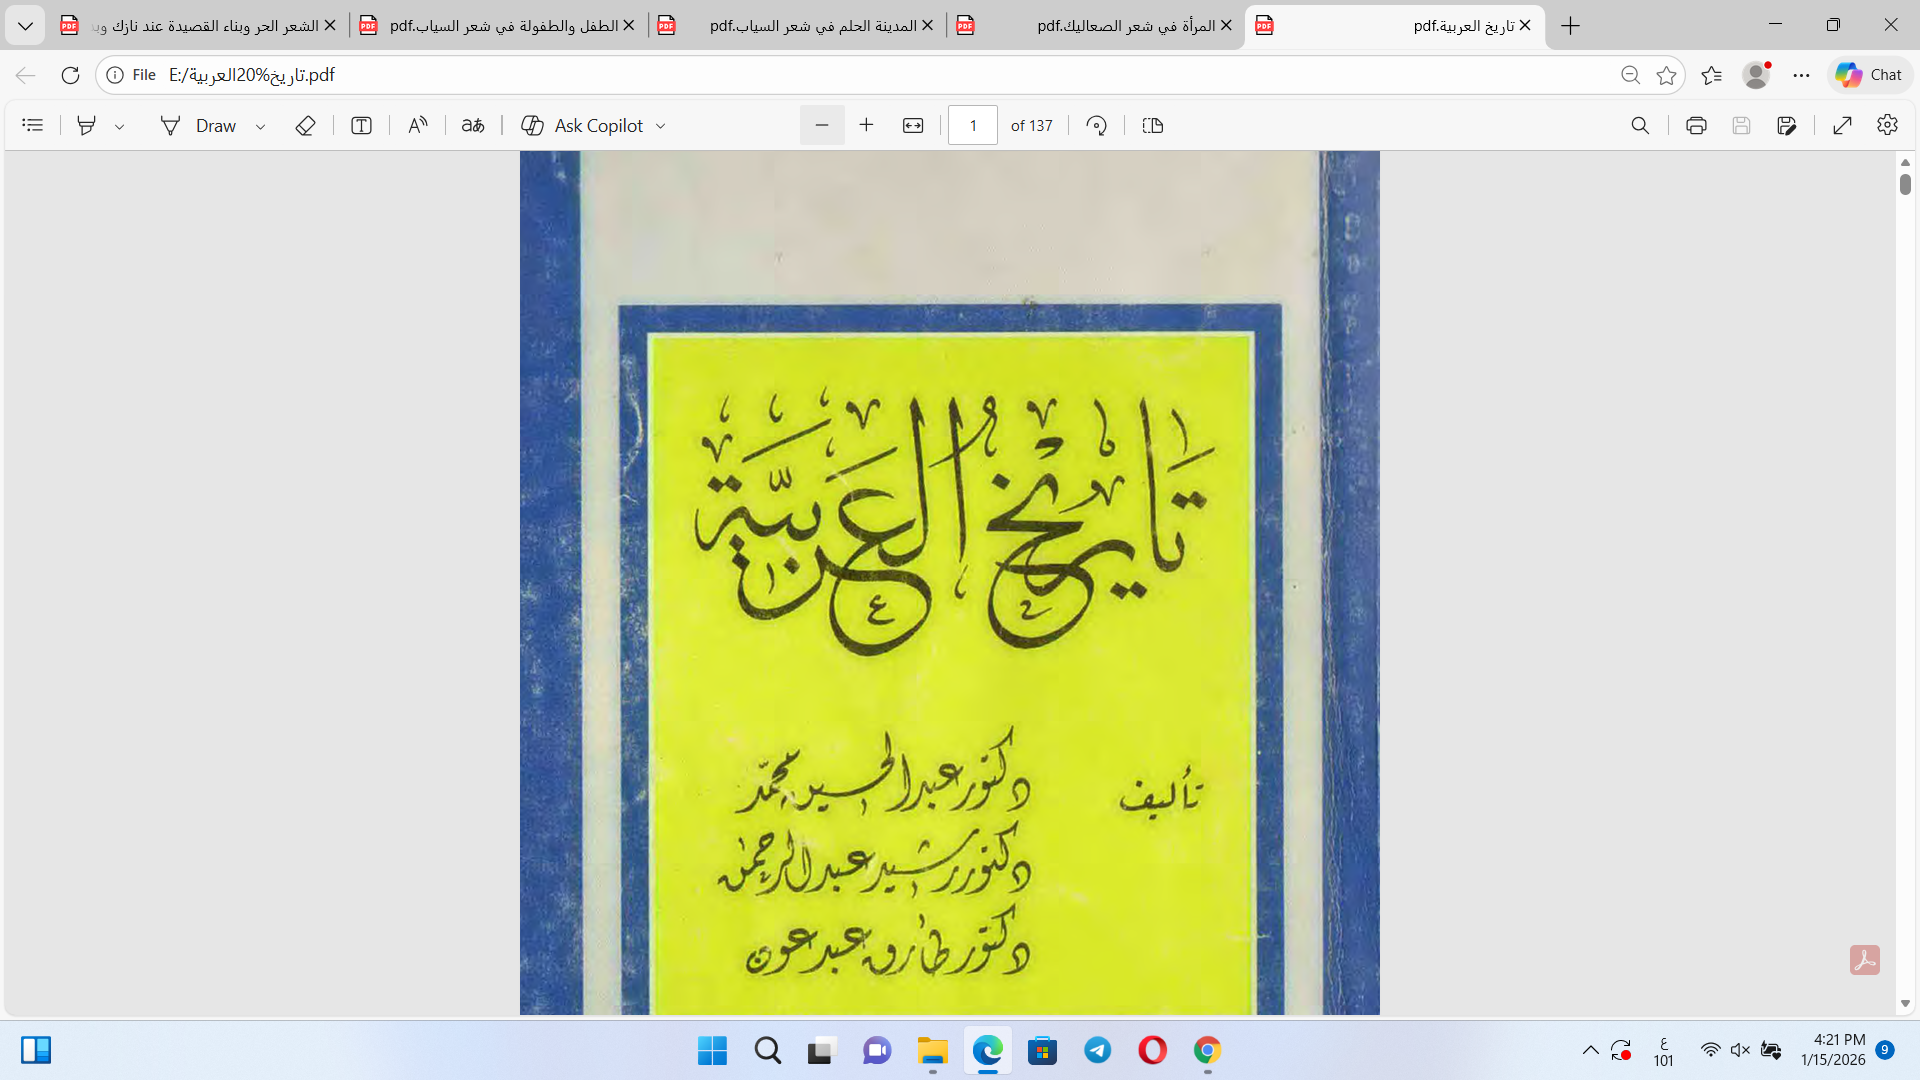 الشعر الحر وبناء القصيدة عند نازك وبد
الطفل والطفولة في شعر السياب.pdf
المدينة الحلم في شعر السياب.pdf
المرأة في شعر الصعاليك.pdf
تاريخ العربية.pdf
File E:/تاريخ%20العربية.pdf
Chat
Draw
Ask Copilot
1 of 137
تاريخ العربية
تأليف
دكتور عبدالحسين محمد
دكتور رشيد عبدالرحمن
دكتور طارق عبدعون
ع
101
4:21 PM
1/15/2026
9